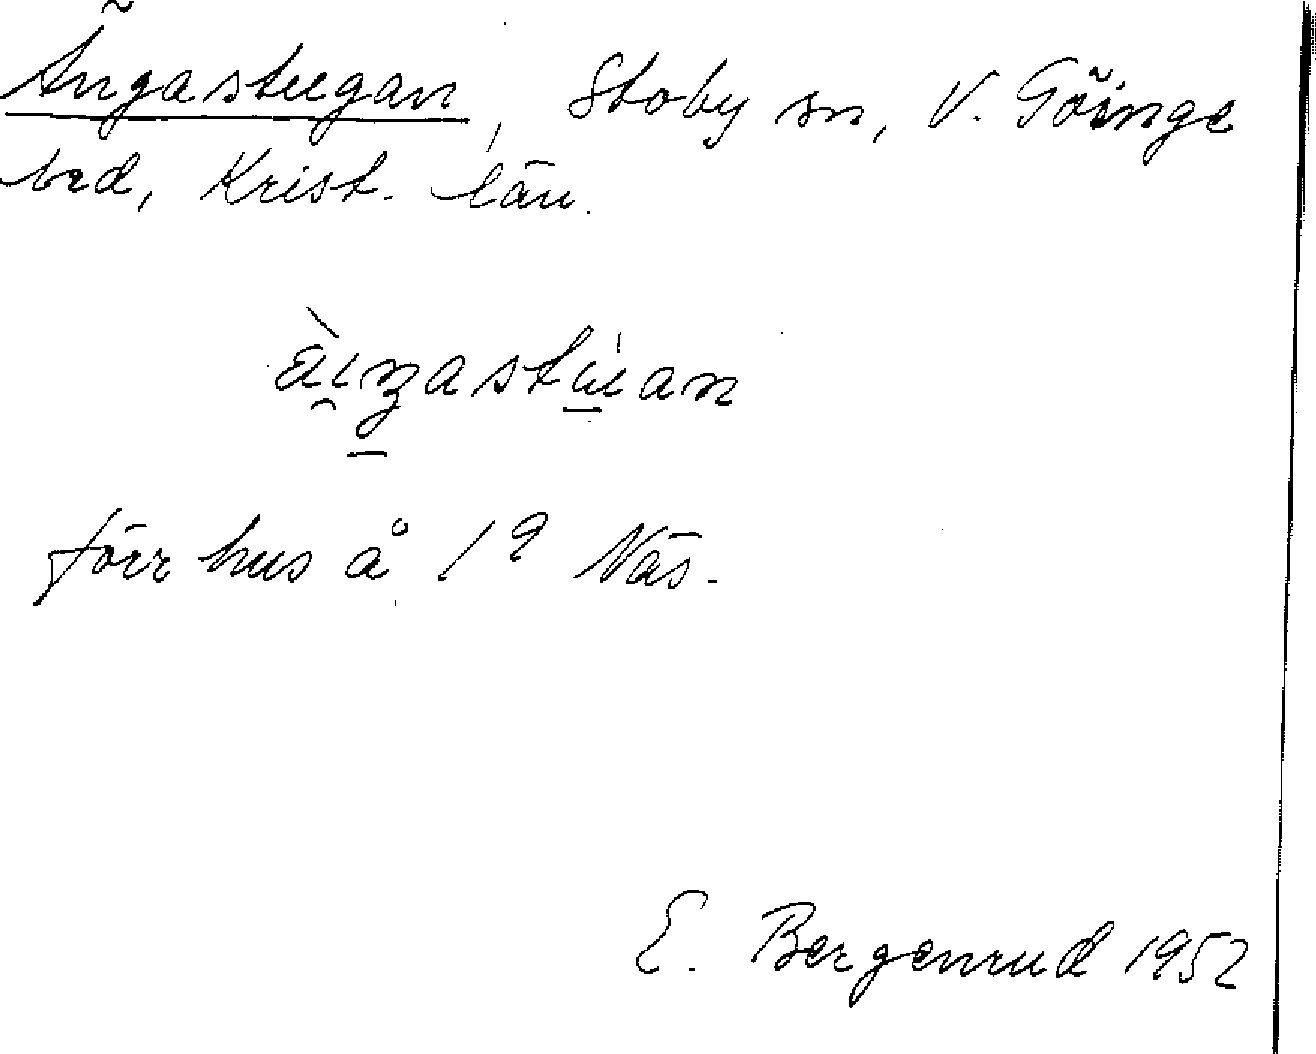 Ängastugan, Stoby sn, V. Göinge
hrd, Krist. län.
förr hus å 1⁹ Näs.
E. Bergenrud 1952